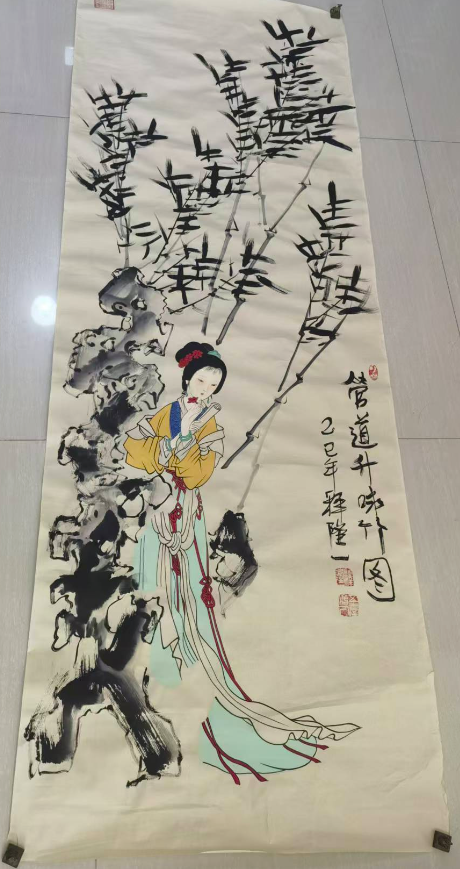 管道升咏竹图
乙巳年 隆一